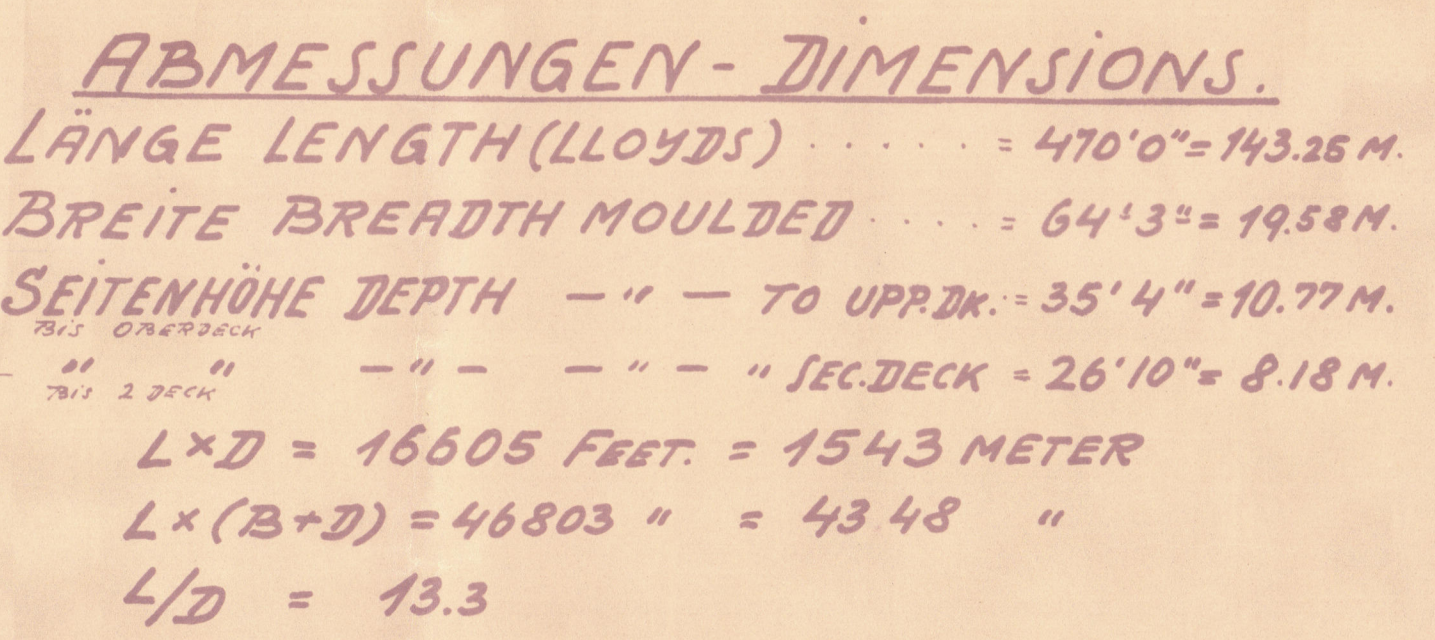 ABMESSUNGEN - DIMENSIONS.
LÄNGE LENGTH (LLOYDS) · · · · · = 470'0" = 143.25 M.
BREITE BREADTH MOULDED · · · · = 64'3" = 19.58 M.
SEITENHÖHE DEPTH — " — TO UPP.DK. · = 35'4" = 10.77 M.
BIS OBERDECK
" " — " — — " — " SEC.DECK = 26'10" = 8.18 M.
BIS 2 DECK
L×D = 16605 FEET. = 1543 METER
L×(B+D) = 46803 " = 4348 "
L/D = 13.3